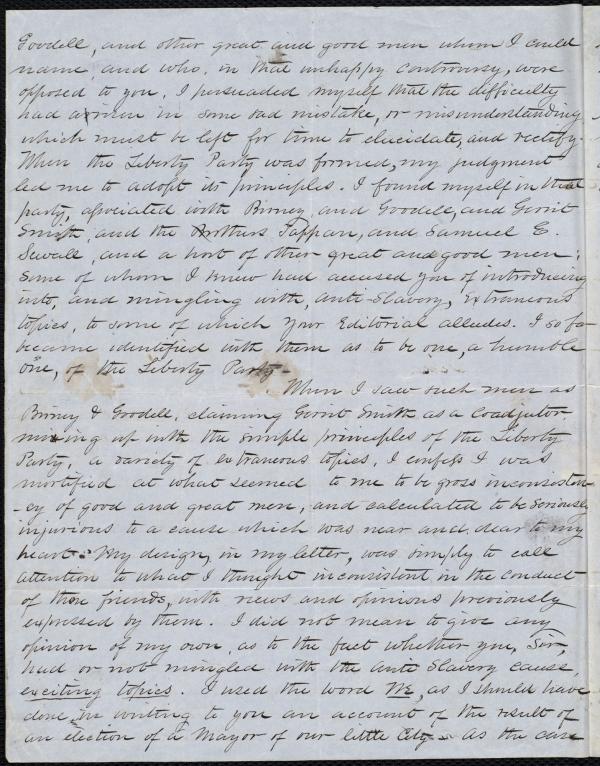 Goodell, and other great and good men whom I could
name, and who, in that unhappy controversy, were
opposed to you, I persuaded myself that the difficulty
had arisen in some sad mistake, or misunderstanding
which must be left for time to elucidate, and rectify.
When the Liberty Party was formed, my judgment
led me to adopt its principles. I found myself in that
party, associated with Birney, and Goodell, and Gerrit
Smith, and the Brothers Tappan, and Samuel E.
Sewall, and a host of other great and good men;
some of whom I knew had accused you of introducing
into, and mingling with, anti-Slavery, extraneous
topics, to some of which your Editorial alludes. I so far
became identified with them as to be one, a humble
one, of the Liberty Party—
When I saw such men as
Birney & Goodell, claiming Gerrit Smith as a coadjutor
mixing up with the simple principles of the Liberty
Party, a variety of extraneous topics, I confess I was
mortified at what seemed to me to be gross inconsisten-
-cy of good and great men, and calculated to be seriously
injurious to a cause which was near and dear to my
heart. My design, in my letter, was simply to call
attention to what I thought inconsistent in the conduct
of those friends, with views and opinions previously
expressed by them. I did not mean to give any
opinion of my own, as to the fact whether you, Sir,
had or not mingled with the anti Slavery cause,
exciting topics. I used the word We, as I should have
done, in writing to you an account of the result of
an election of a Mayor of our little City— As the case